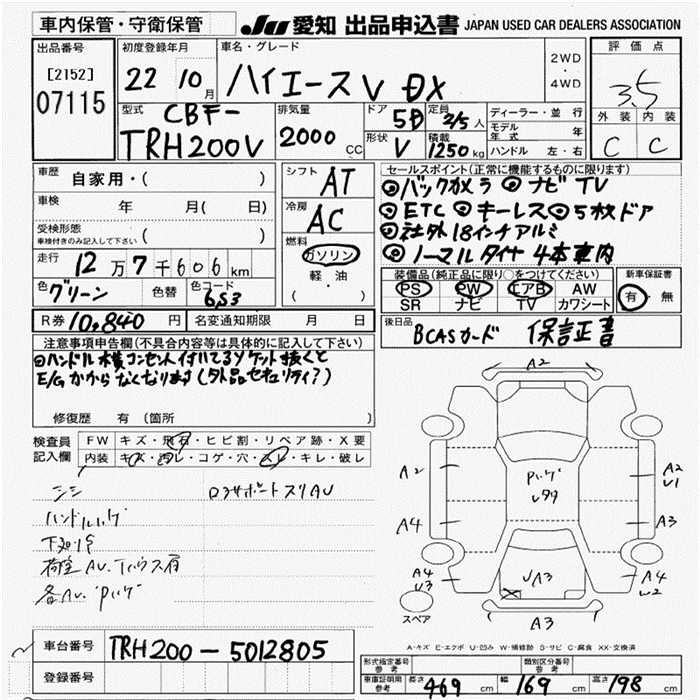 車内保管・守衛保管
JU 愛知 出品申込書 JAPAN USED CAR DEALERS ASSOCIATION
出品番号
[2152]
07115
初度登録年月
22 10月
車名・グレード
ハイエースV DX
2WD
・
4WD
評価点
3.5
外装 内装
C C
型式
CBF-
TRH200V
排気量
2000 CC
ドア
5D
形状
V
定員
3/5人
積載
1250kg
ディーラー・並行
モデル年式 年
ハンドル 左・右
車歴
自家用・( )
車検
年 月( 日)
受検形態
車検付きのみ記入して下さい ( )
走行
12万7千606km
色
グリーン
色替
色コード
6S3
シフト
AT
冷房
AC
燃料
ガソリン
軽・油
( )
セールスポイント(正常に機能するものに限ります)
◎バックカメラ ◎ナビTV
◎ETC ◎キーレス ◎5枚ドア
◎社外18インチアルミ
◎ノーマルタイヤ4本車内
装備品(純正品に限り○をつけてください)
PS PW エアB AW
SR ナビ TV カワシート
新車保証書
有・無
R券 10,840円
名変通知期限 月 日
後日品
BCASカード 保証正書
注意事項申告欄(不具合内容等は具体的に記入して下さい)
◎ハンドル横コンセント付いてるソケット抜くと
E/Gかからなくなります(外品セキュリティ?)
修復歴 有(箇所 )
検査員記入欄
FW キズ・飛石・ヒビ割・リペア跡・X要
内装 キズ・汚レ・コゲ・穴・スレ・キレ・破レ
A2
A2
A4
A4
U3
A2
U1
A3
A4
U2
A3
スペア
A-キズ E-エクボ U-凹み W-補修跡 S-サビ C-腐食 XX-交換済
車台番号
TRH200-5012805
登録番号
形式指定番号
参考
類別区分番号
参考
車庫証明用
参考
長さ 469cm 幅 169cm 高さ 198cm